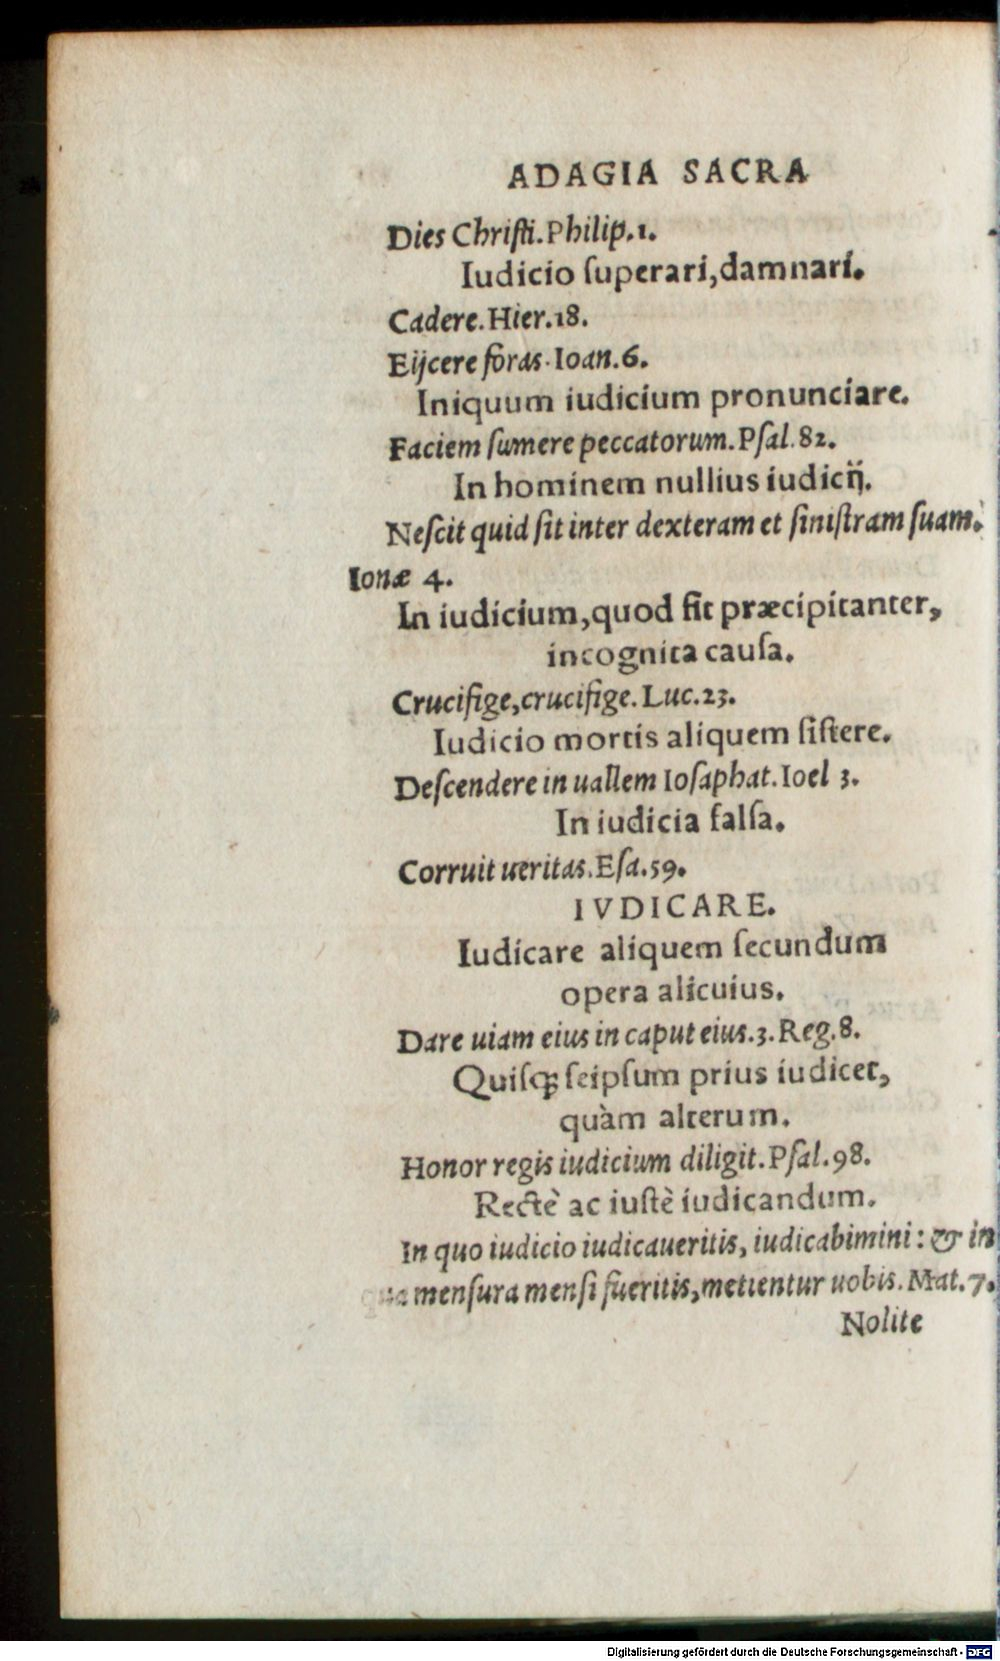 ADAGIA SACRA
Dies Chriſti. Philip. 1.
Iudicio ſuperari, damnari.
Cadere. Hier. 18.
Eijcere foras. Ioan. 6.
Iniquum iudicium pronunciare.
Faciem ſumere peccatorum. Pſal. 82.
In hominem nullius iudicij.
Neſcit quid ſit inter dexteram et ſiniſtram ſuam.
Ionæ 4.
In iudicium, quod fit præcipitanter,
incognita cauſa.
Crucifige, crucifige. Luc. 23.
Iudicio mortis aliquem ſiſtere.
Deſcendere in uallem Ioſaphat. Ioel 3.
In iudicia falſa.
Corruit ueritas. Eſa. 59.
IVDICARE.
Iudicare aliquem ſecundum
opera alicuius.
Dare uiam eius in caput eius. 3. Reg. 8.
Quiſq; ſeipſum prius iudicet,
quàm alterum.
Honor regis iudicium diligit. Pſal. 98.
Rectè ac iuſtè iudicandum.
In quo iudicio iudicaueritis, iudicabimini: & in
qua menſura menſi fueritis, metientur uobis. Mat. 7.
Nolite
Digitalisierung gefördert durch die Deutsche Forschungsgemeinschaft - DFG